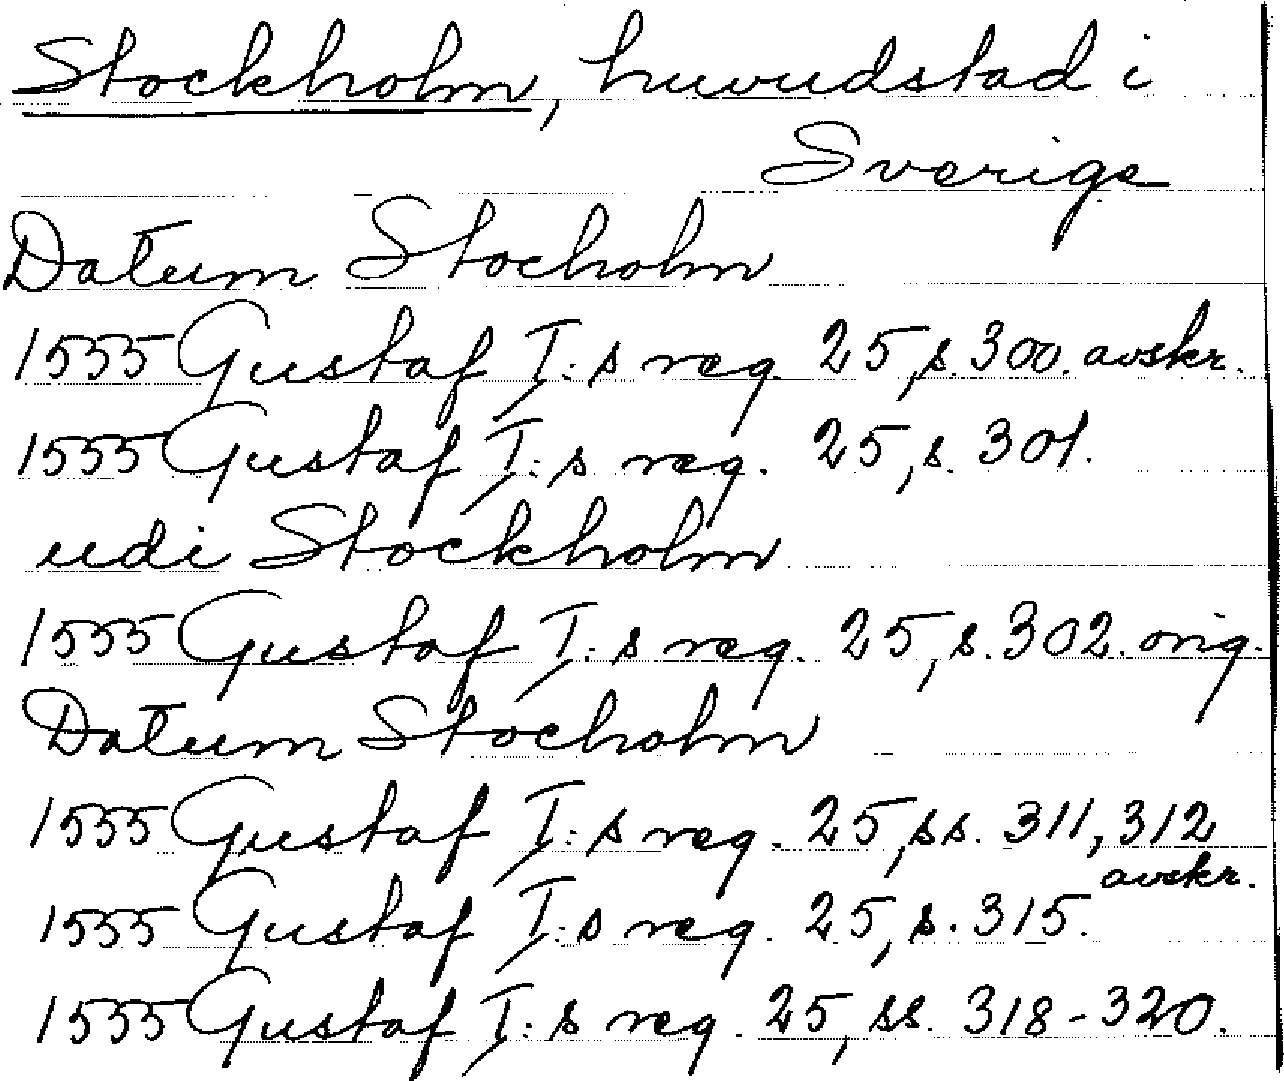 Stockholm, huvudstad i
Sverige
Datum Stocholm
1555 Gustaf I:s reg. 25, s. 300. avskr.
1555 Gustaf I:s reg. 25, s. 301.
udi Stockholm
1555 Gustaf I:s reg. 25, s. 302. orig.
Datum Stocholm
1555 Gustaf I:s reg. 25, ss. 311, 312
avskr.
1555 Gustaf I:s reg. 25, s. 315.
1555 Gustaf I:s reg. 25, ss. 318-320.